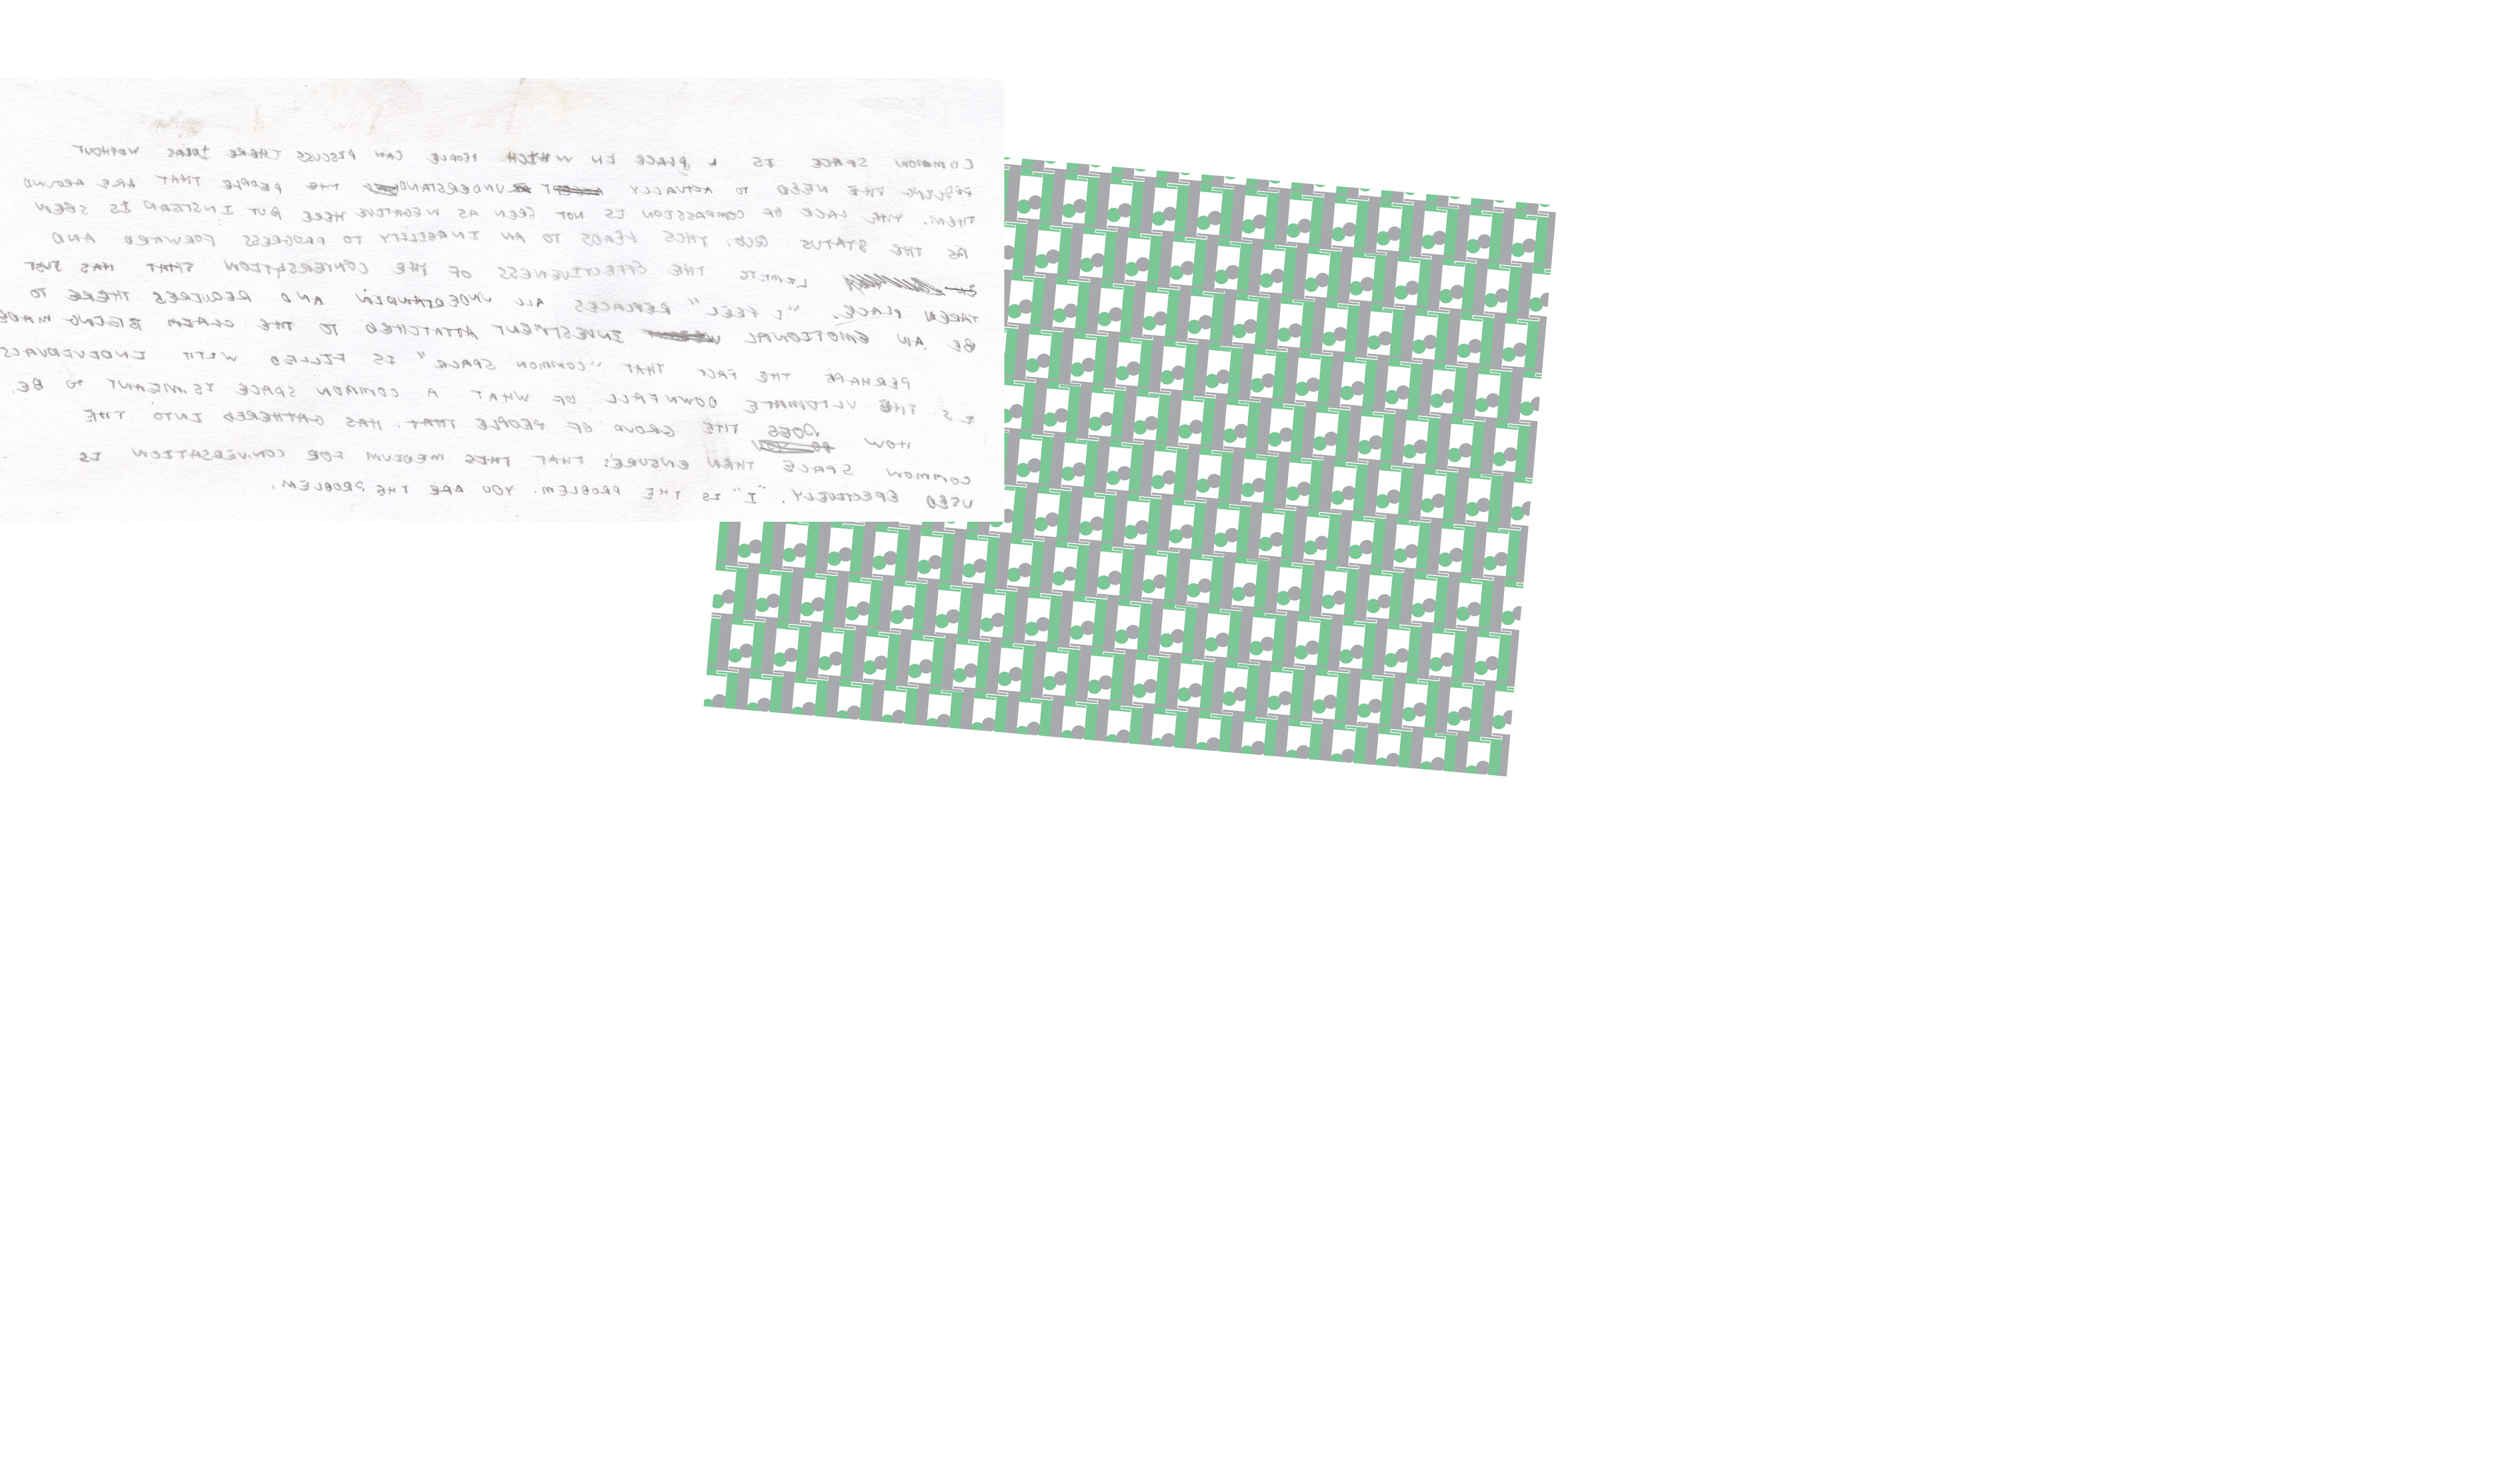 COMMON SPACE IS A PLACE IN WHICH PEOPLE CAN DISCUSS THERE IDEAS WITHOUT
THE NEED TO ACTUALLY UNDERSTAND THE PEOPLE THAT ARE AROUND
THEM. THE LACK OF COMPASSION IS NOT SEEN AS NEGATIVE HERE BUT INSTEAD IS SEEN
AS THE STATUS QUO. THIS LEADS TO AN INABILITY TO PROGRESS FORWARD AND
LIMITS THE EFFECTIVENESS OF THE CONVERSATION THAT HAS JUST
TAKEN PLACE. "I FEEL" REPLACES ALL UNDERSTANDIN AND REQUIRES THERE TO
BE AN EMOTIONAL INVESTMENT ATTATCHED TO THE CLAIM BEING MADE
PERHAPS THE FACT THAT "COMMON SPACE" IS FILLED WITH INDEVIDUALS
IS THE ULTIMATE DOWNFALL OF WHAT A COMMON SPACE IS MEANT TO BE.
HOW DOES THE GROUP OF PEOPLE THAT HAS GATHERED INTO THE
COMMON SPACE THEN ENSURES THAT THIS MEDIUM FOR CONVERSATION IS
USED EFECTIVELY. "I" IS THE PROBLEM. YOU ARE THE PROBLEM.